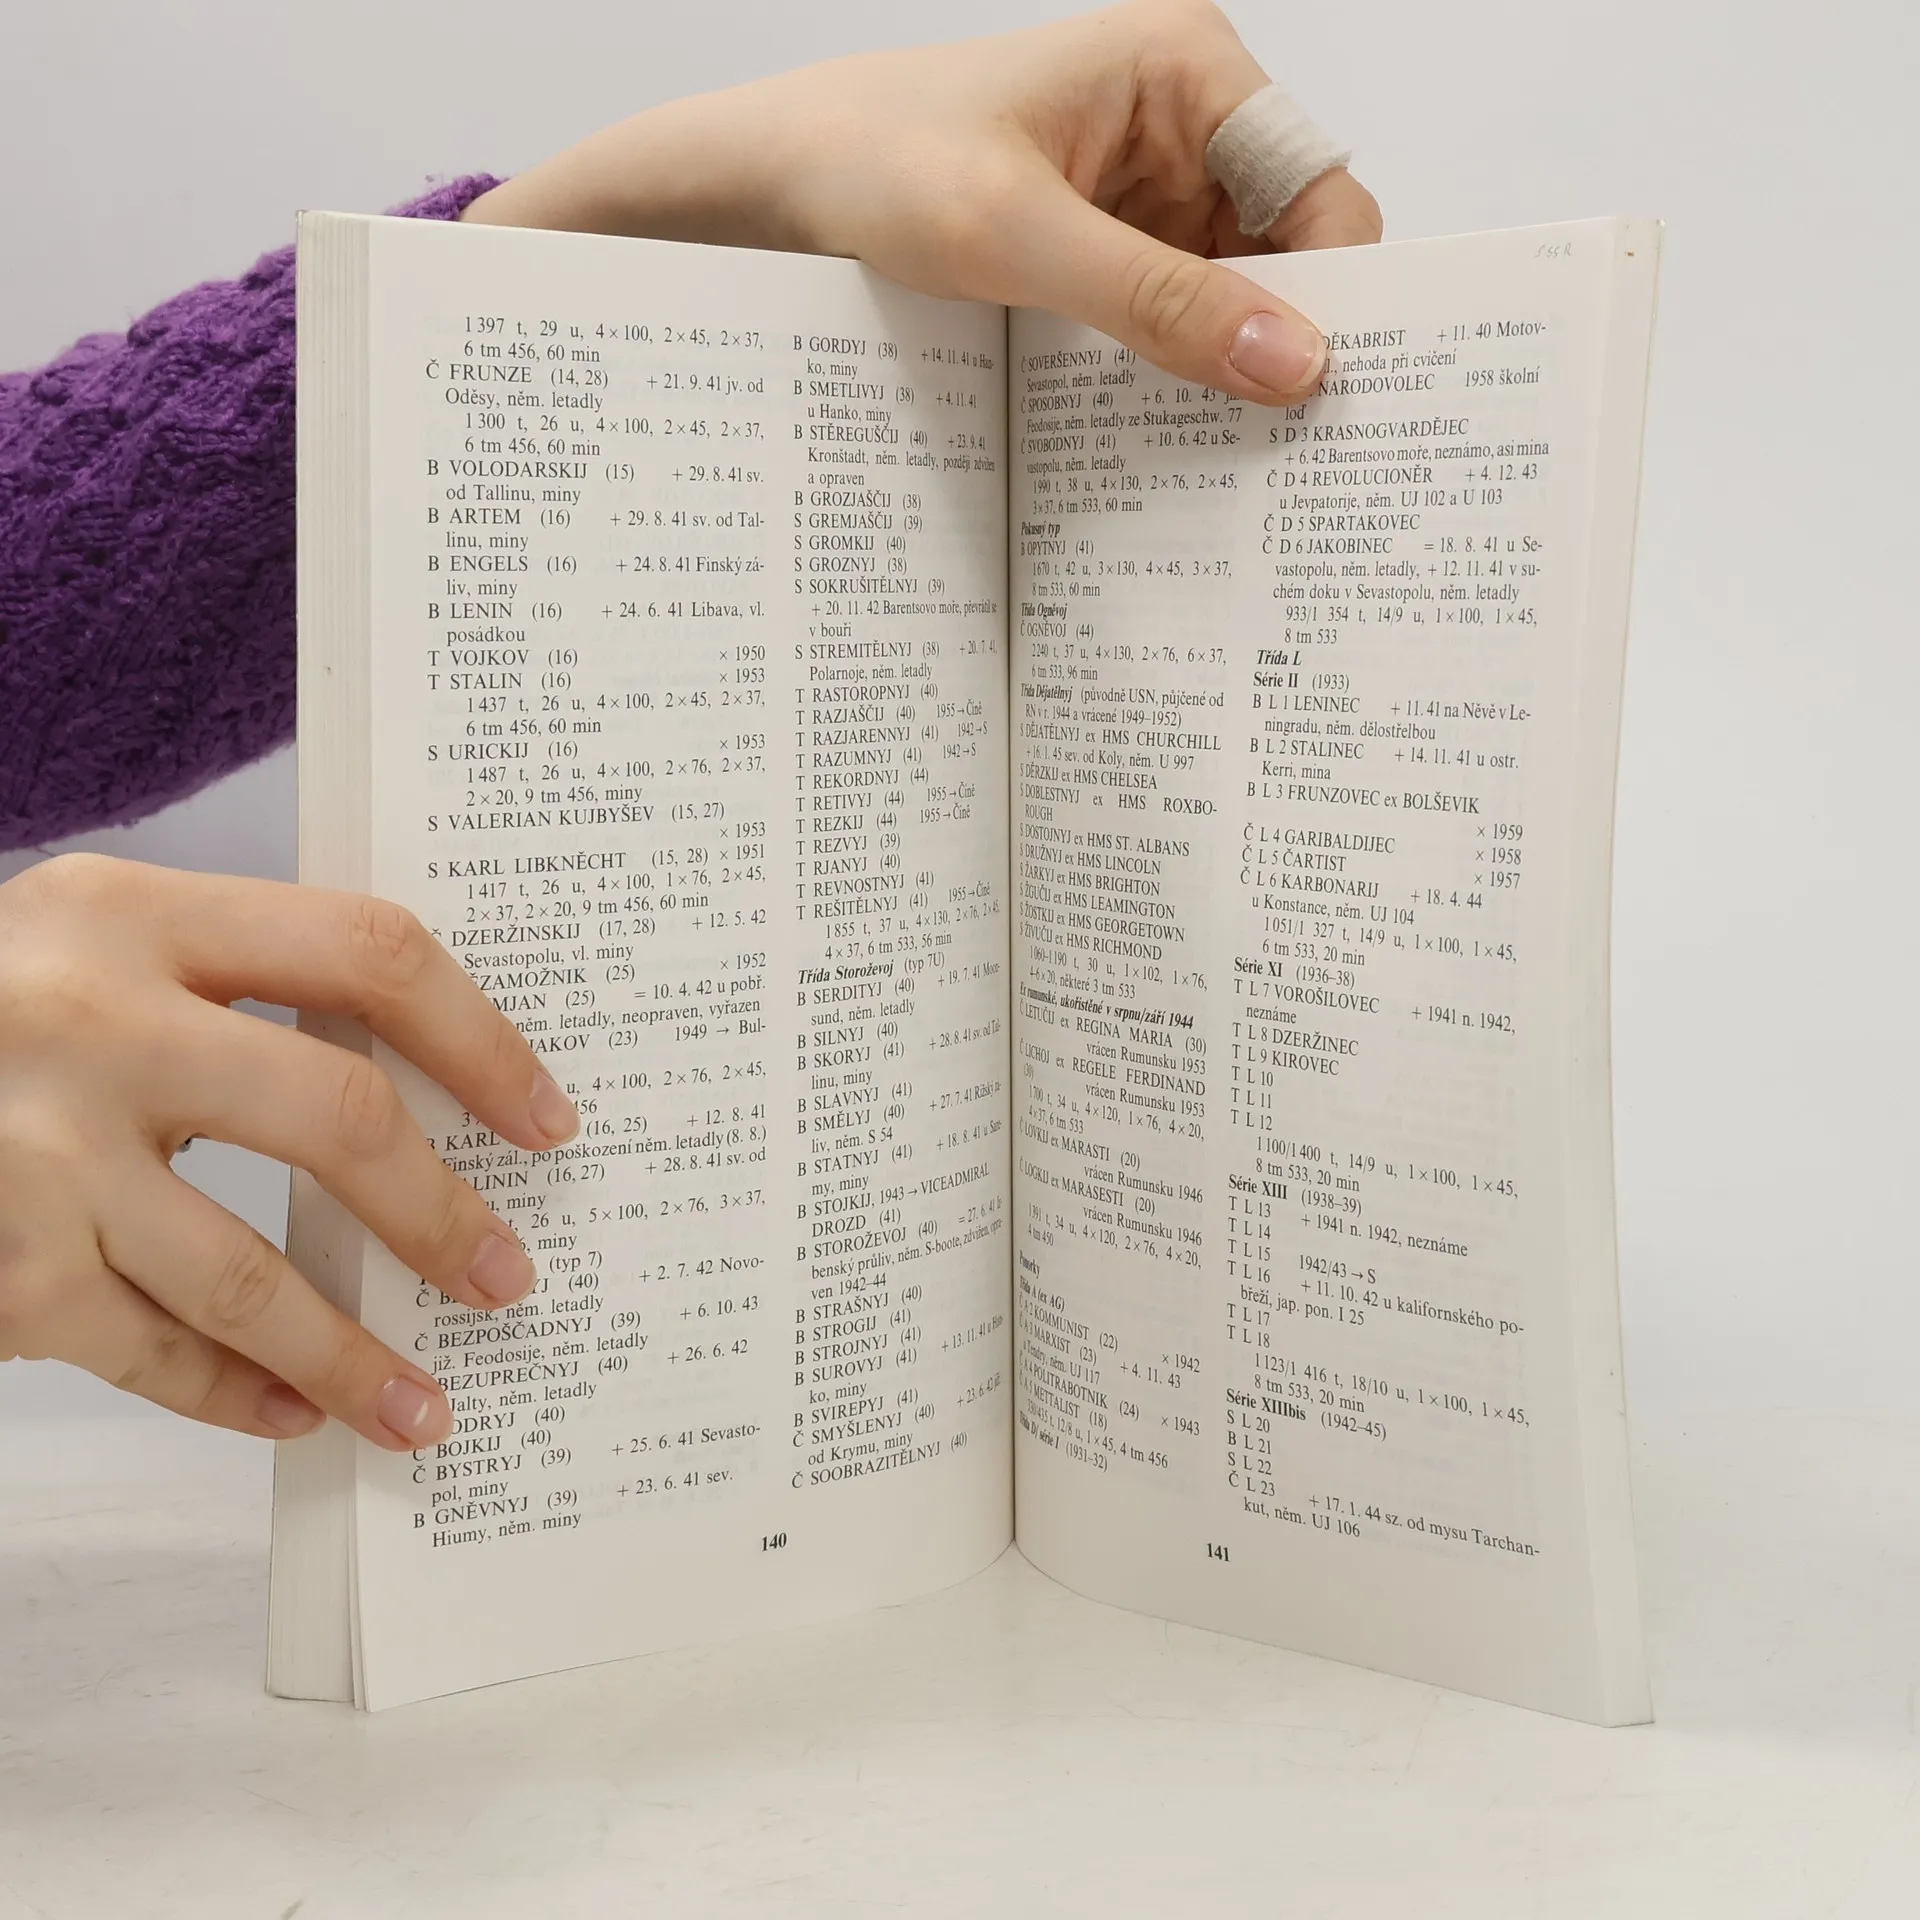 1 397 t, 29 u, 4 × 100, 2 × 45, 2 × 37,
6 tm 456, 60 min
Č FRUNZE (14, 28) + 21. 9. 41 jv. od
Oděsy, něm. letadly
1 300 t, 26 u, 4 × 100, 2 × 45, 2 × 37,
6 tm 456, 60 min
B VOLODARSKIJ (15) + 29. 8. 41 sv.
od Tallinu, miny
B ARTEM (16) + 29. 8. 41 sv. od Tal-
linu, miny
B ENGELS (16) + 24. 8. 41 Finský zá-
liv, miny
B LENIN (16) + 24. 6. 41 Libava, vl.
posádkou
T VOJKOV (16) × 1950
T STALIN (16) × 1953
1 437 t, 26 u, 4 × 100, 2 × 45, 2 × 37,
6 tm 456, 60 min
S URICKIJ (16) × 1953
1 487 t, 26 u, 4 × 100, 2 × 76, 2 × 37,
2 × 20, 9 tm 456, miny
S VALERIAN KUJBYŠEV (15, 27)
× 1953
S KARL LIBKNĚCHT (15, 28) × 1951
1 417 t, 26 u, 4 × 100, 1 × 76, 2 × 45,
2 × 37, 2 × 20, 9 tm 456, 60 min
Č DZERŽINSKIJ (17, 28) + 12. 5. 42
Sevastopolu, vl. miny
ĚZAMOŽNIK (25) × 1952
MJAN (25) = 10. 4. 42 u pobř.
něm. letadly, neopraven, vyřazen
JAKOV (23) 1949 → Bul-
u, 4 × 100, 2 × 76, 2 × 45,
3 456
B KARL (16, 25) + 12. 8. 41
Finský zál., po poškození něm. letadly (8. 8.)
ALININ (16, 27) + 28. 8. 41 sv. od
u, miny
t, 26 u, 5 × 100, 2 × 76, 3 × 37,
6, miny
(typ 7)
Č B YJ (40) + 2. 7. 42 Novo-
rossijsk, něm. letadly
Č BEZPOŠČADNYJ (39) + 6. 10. 43
již. Feodosije, něm. letadly
BEZUPREČNYJ (40) + 26. 6. 42
Jalty, něm. letadly
ODRYJ (40)
Č BOJKIJ (40)
Č BYSTRYJ (39) + 25. 6. 41 Sevasto-
pol, miny
B GNĚVNYJ (39) + 23. 6. 41 sev.
Hiumy, něm. miny
B GORDYJ (38) + 14. 11. 41 u Han-
ko, miny
B SMETLIVYJ (38) + 4. 11. 41
u Hanko, miny
B STĚREGUŠČIJ (40) + 23. 9. 41
Kronštadt, něm. letadly, později zdvižen
a opraven
B GROZJAŠČIJ (38)
S GREMJAŠČIJ (39)
S GROMKIJ (40)
S GROZNYJ (38)
S SOKRUŠITĚLNYJ (39)
+ 20. 11. 42 Barentsovo moře, převrátil se
v bouři
S STREMITĚLNYJ (38) + 20. 7. 41,
Polarnoje, něm. letadly
T RASTOROPNYJ (40)
T RAZJAŠČIJ (40) 1955 → Číně
T RAZJARENNYJ (41) 1942 → S
T RAZUMNYJ (41) 1942 → S
T REKORDNYJ (44)
T RETIVYJ (44) 1955 → Číně
T REZKIJ (44) 1955 → Číně
T REZVYJ (39)
T RJANYJ (40)
T REVNOSTNYJ (41)
T REŠITĚLNYJ (41) 1955 → Číně
1 855 t, 37 u, 4 × 130, 2 × 76, 2 × 45,
4 × 37, 6 tm 533, 56 min
Třída Storoževoj (typ 7U)
B SERDITYJ (40) + 19. 7. 41 Moon-
sund, něm. letadly
B SILNYJ (40)
B SKORYJ (41) + 28. 8. 41 sv. od Tal-
linu, miny
B SLAVNYJ (41)
B SMĚLYJ (40) + 27. 7. 41 Rižský zá-
liv, něm. S 54
B STATNYJ (41) + 18. 8. 41 u Sare-
my, miny
B STOJKIJ, 1943 → VICEADMIRAL
DROZD (41)
B STOROŽEVOJ (40) = 27. 6. 41 Ir-
benský průliv, něm. S-boote, zdvižen, opra-
ven 1942–44
B STRAŠNYJ (40)
B STROGIJ (41)
B STROJNYJ (41)
B SUROVYJ (41) + 13. 11. 41 u Han-
ko, miny
B SVIREPYJ (41)
Č SMYŠLENYJ (40) + 23. 6. 42 již.
od Krymu, miny
Č SOOBRAZITĚLNYJ (40)
140
SSSR
Č SOVERŠENNYJ (41)
Sevastopol, něm. letadly
Č SPOSOBNYJ (40) + 6. 10. 43
Feodosije, něm. letadly ze Stukageschw. 77
Č SVOBODNYJ (41) + 10. 6. 42 u Se-
vastopolu, něm. letadly
1990 t, 38 u, 4 × 130, 2 × 76, 2 × 45,
3 × 37, 6 tm 533, 60 min
Pokusný typ
B OPYTNYJ (41)
1670 t, 42 u, 3 × 130, 4 × 45, 3 × 37,
8 tm 533, 60 min
Třída Ogněvoj
Č OGNĚVOJ (44)
2240 t, 37 u, 4 × 130, 2 × 76, 6 × 37,
6 tm 533, 96 min
Třída Dějatělnyj (původně USN, půjčené od
RN v r. 1944 a vrácené 1949–1952)
S DĚJATĚLNYJ ex HMS CHURCHILL
+ 16. 1. 45 sev. od Koly, něm. U 997
S DĚRZKIJ ex HMS CHELSEA
S DOBLESTNYJ ex HMS ROXBO-
ROUGH
S DOSTOJNYJ ex HMS ST. ALBANS
S DRUŽNYJ ex HMS LINCOLN
S ŽARKYJ ex HMS BRIGHTON
S ŽGUČIJ ex HMS LEAMINGTON
S ŽOSTKIJ ex HMS GEORGETOWN
S ŽIVUČIJ ex HMS RICHMOND
1060–1190 t, 30 u, 1 × 102, 1 × 76,
4–6 × 20, některé 3 tm 533
Ex rumunské, ukořistěné v srpnu/září 1944
Č LETUČIJ ex REGINA MARIA (30)
vrácen Rumunsku 1953
Č LICHOJ ex REGELE FERDINAND
(30) vrácen Rumunsku 1953
1700 t, 34 u, 4 × 120, 1 × 76, 4 × 20,
4 × 37, 6 tm 533
Č LOVKIJ ex MARASTI (20)
vrácen Rumunsku 1946
Č LOGKIJ ex MARASESTI (20)
vrácen Rumunsku 1946
1391 t, 34 u, 4 × 120, 2 × 76, 4 × 20,
4 tm 450
Ponorky
Třída A (ex AG)
Č A 2 KOMMUNIST (22) × 1942
Č A 3 MARXIST (23) + 4. 11. 43
u Tendry, něm. UJ 117
Č A 4 POLITRABOTNIK (24) × 1943
Č A 5 METTALIST (18)
12/8 u, 1 × 45, 4 tm 456
Třída D/ série I (1931–32)
DĚKABRIST + 11. 40 Motov-
nehoda při cvičení
NARODOVOLEC 1958 školní
loď
S D 3 KRASNOGVARDĚJEC
+ 6. 42 Barentsovo moře, neznámo, asi mina
Č D 4 REVOLUCIONĚR + 4. 12. 43
u Jevpatorije, něm. UJ 102 a U 103
Č D 5 SPARTAKOVEC
Č D 6 JAKOBINEC = 18. 8. 41 u Se-
vastopolu, něm. letadly, + 12. 11. 41 v su-
chém doku v Sevastopolu, něm. letadly
933/1 354 t, 14/9 u, 1 × 100, 1 × 45,
8 tm 533
Třída L
Série II (1933)
B L 1 LENINEC + 11. 41 na Něvě v Le-
ningradu, něm. dělostřelbou
B L 2 STALINEC + 14. 11. 41 u ostr.
Kerri, mina
B L 3 FRUNZOVEC ex BOLŠEVIK
× 1959
Č L 4 GARIBALDIJEC × 1958
Č L 5 ČARTIST × 1957
Č L 6 KARBONARIJ + 18. 4. 44
u Konstance, něm. UJ 104
1051/1 327 t, 14/9 u, 1 × 100, 1 × 45,
6 tm 533, 20 min
Série XI (1936–38)
T L 7 VOROŠILOVEC + 1941 n. 1942,
neznáme
T L 8 DZERŽINEC
T L 9 KIROVEC
T L 10
T L 11
T L 12
1 100/1 400 t, 14/9 u, 1 × 100, 1 × 45,
8 tm 533, 20 min
Série XIII (1938–39)
T L 13 + 1941 n. 1942, neznáme
T L 14
T L 15 1942/43 → S
T L 16 + 11. 10. 42 u kalifornského po-
břeží, jap. pon. I 25
T L 17
T L 18
1 123/1 416 t, 18/10 u, 1 × 100, 1 × 45,
8 tm 533, 20 min
Série XIIIbis (1942–45)
S L 20
B L 21
S L 22
Č L 23 + 17. 1. 44 sz. od mysu Tarchan-
kut, něm. UJ 106
141